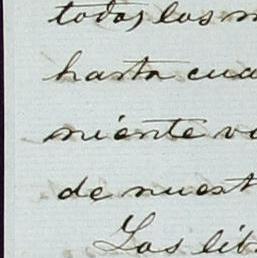 todos los m
hasta cua
niente vo
de nuest
Los lib